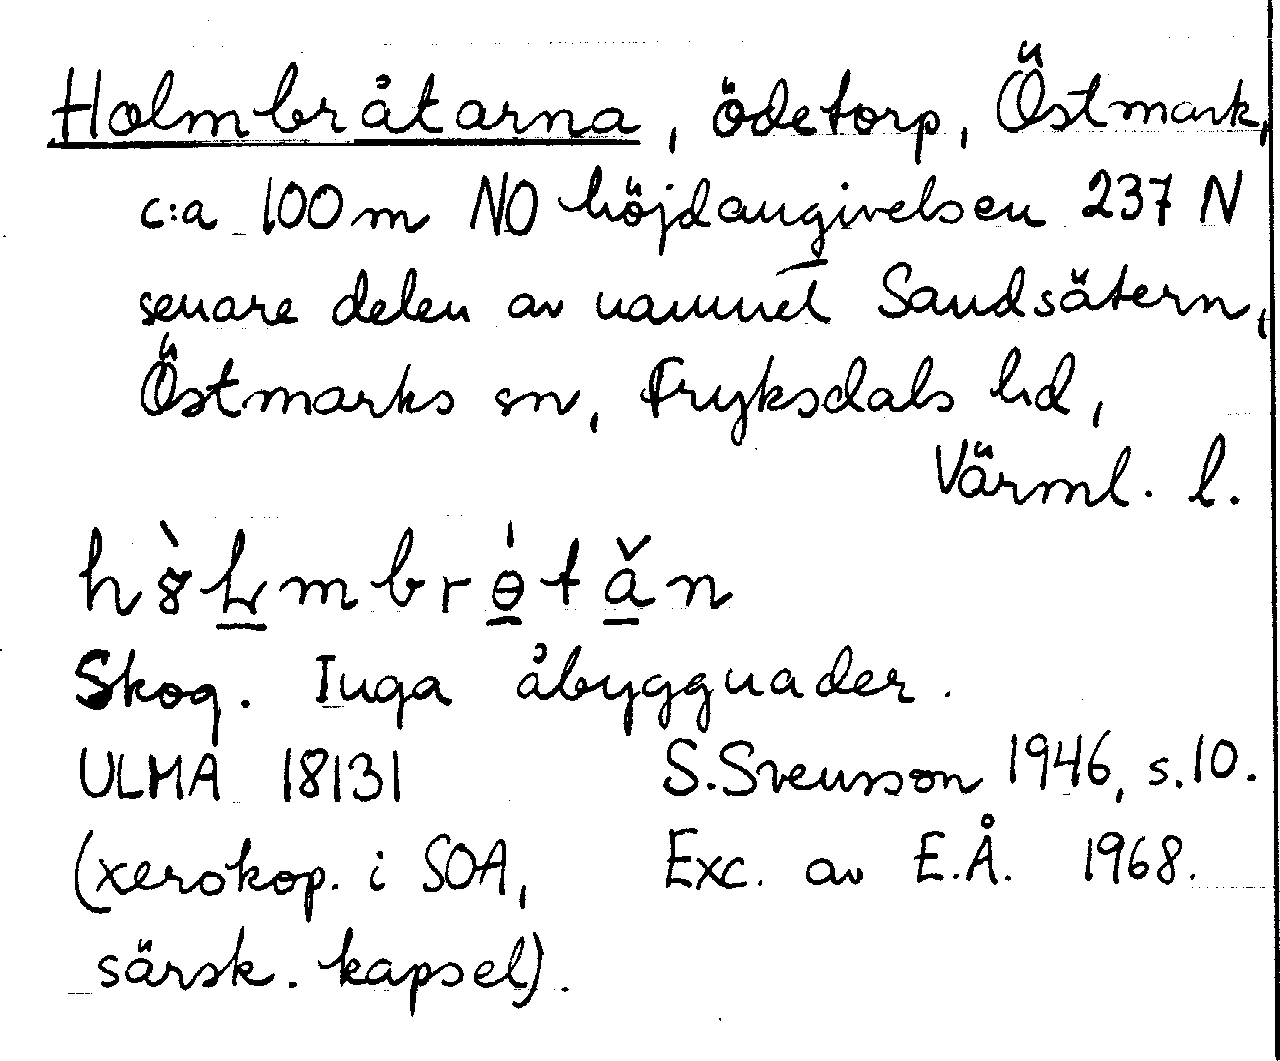 Holmbråtarna, ödetorp, Östmark,
c:a 100 m NO höjdangivelsen 237 N
senare delen av namnet Sandsätern,
Östmarks sn, Fryksdals hd,
Värml. l.
Skog. Inga åbyggnader.
ULMA 18131 S. Svensson 1946, s. 10.
(xerokop. i SOA, Exc. av E.Å. 1968.
särsk. kapsel).